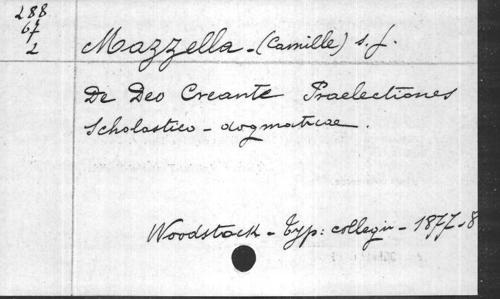 288
67
2
Mazzella - (Camille) s. j.
De Deo Creante Praelectiones
Scholastico - dogmaticae.
Woodstock - Typ: collegii - 1877 - 8